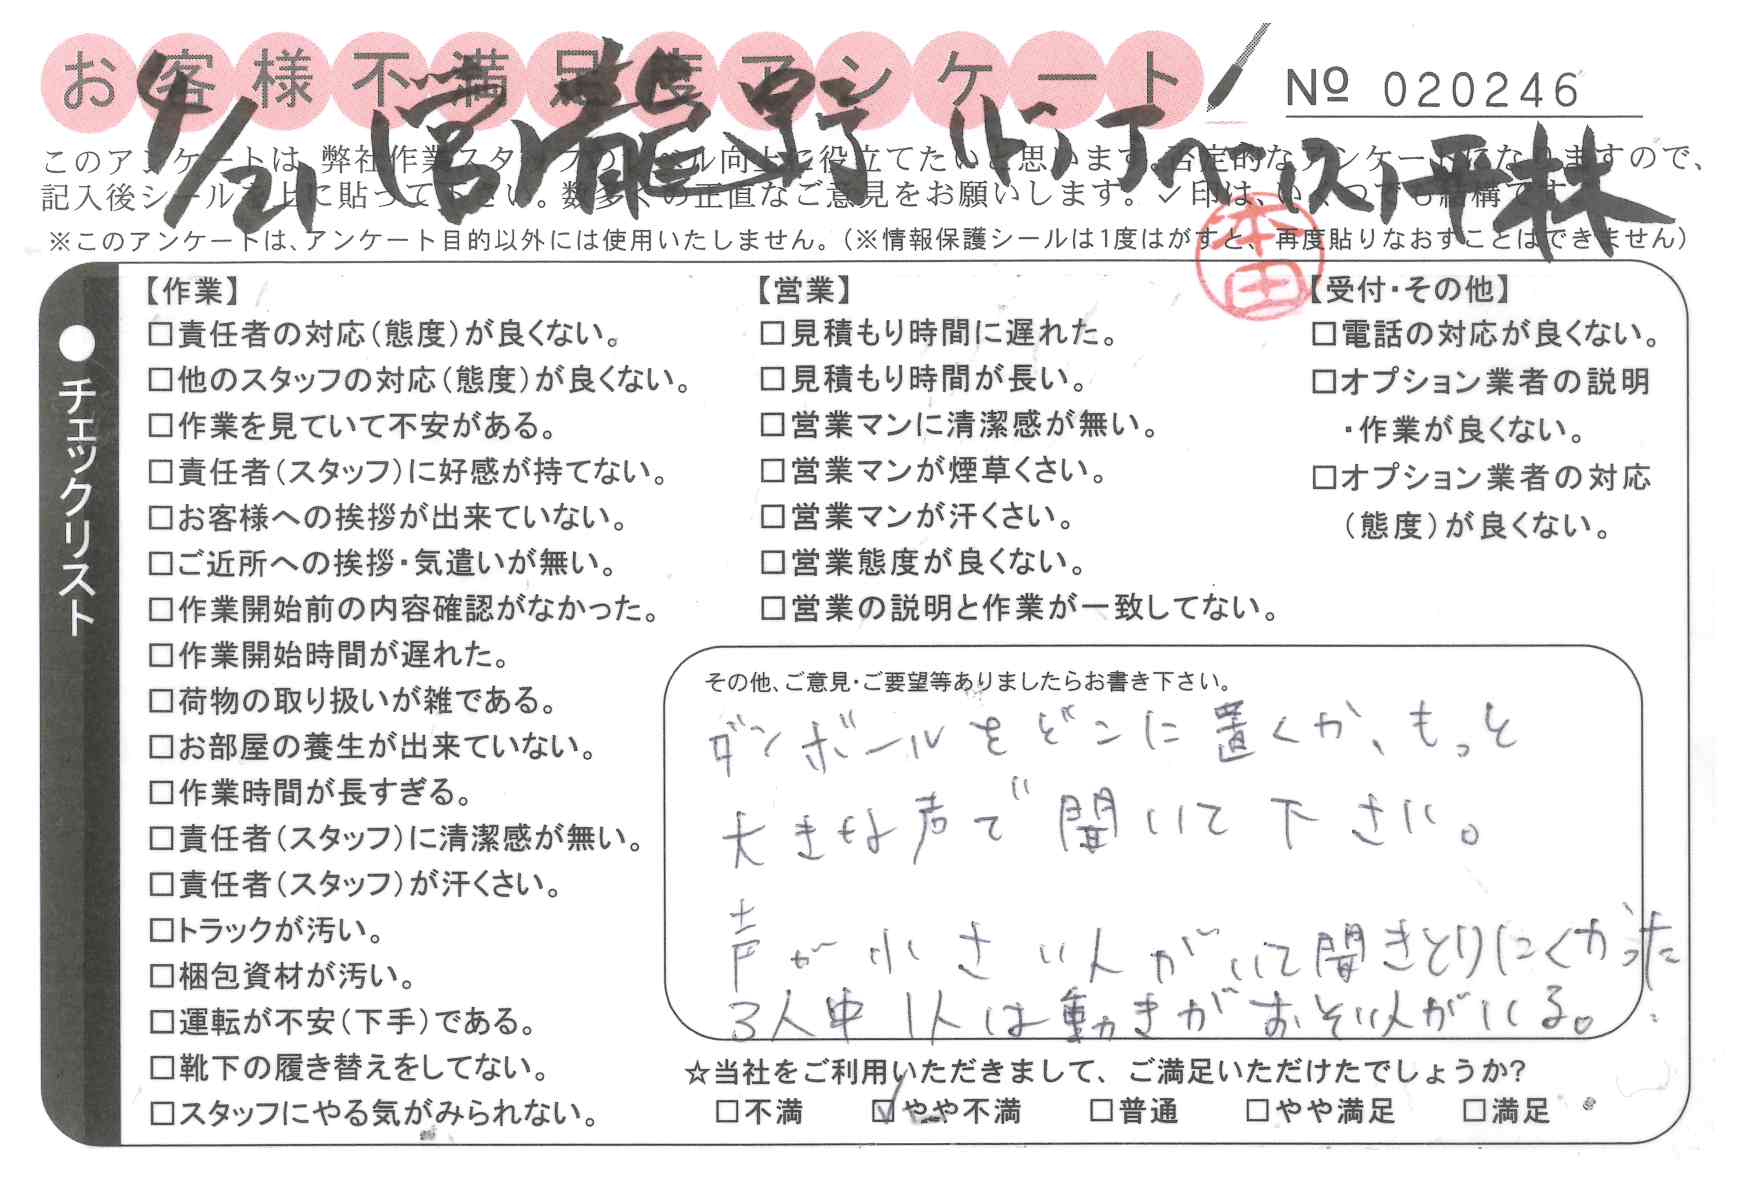 お客様不満足度アンケート
№ 020246
4/21
このアンケートは、弊社作業スタッフのレベル向上に役立てたいと思います。否定的なアンケートになりますので、
記入後シールを上に貼って下さい。数多くの正直なご意見をお願いします。✓印は、いくつでも結構です。
※このアンケートは、アンケート目的以外には使用いたしません。（※情報保護シールは1度はがすと、再度貼りなおすことはできません）
●チェックリスト
【作業】
□責任者の対応（態度）が良くない。
□他のスタッフの対応（態度）が良くない。
□作業を見ていて不安がある。
□責任者（スタッフ）に好感が持てない。
□お客様への挨拶が出来ていない。
□ご近所への挨拶・気遣いが無い。
□作業開始前の内容確認がなかった。
□作業開始時間が遅れた。
□荷物の取り扱いが雑である。
□お部屋の養生が出来ていない。
□作業時間が長すぎる。
□責任者（スタッフ）に清潔感が無い。
□責任者（スタッフ）が汗くさい。
□トラックが汚い。
□梱包資材が汚い。
□運転が不安（下手）である。
□靴下の履き替えをしてない。
□スタッフにやる気がみられない。
【営業】
□見積もり時間に遅れた。
□見積もり時間が長い。
□営業マンに清潔感が無い。
□営業マンが煙草くさい。
□営業マンが汗くさい。
□営業態度が良くない。
□営業の説明と作業が一致してない。
【受付・その他】
□電話の対応が良くない。
□オプション業者の説明
・作業が良くない。
□オプション業者の対応
（態度）が良くない。
その他、ご意見・ご要望等ありましたらお書き下さい。
ダンボールをどこに置くか、もっと
大きな声で聞いて下さい。
声が小さい人がいて聞きとりにくかった
3人中1人は動きがおそい人がいる。
☆当社をご利用いただきまして、ご満足いただけたでしょうか？
□不満 ☑やや不満 □普通 □やや満足 □満足